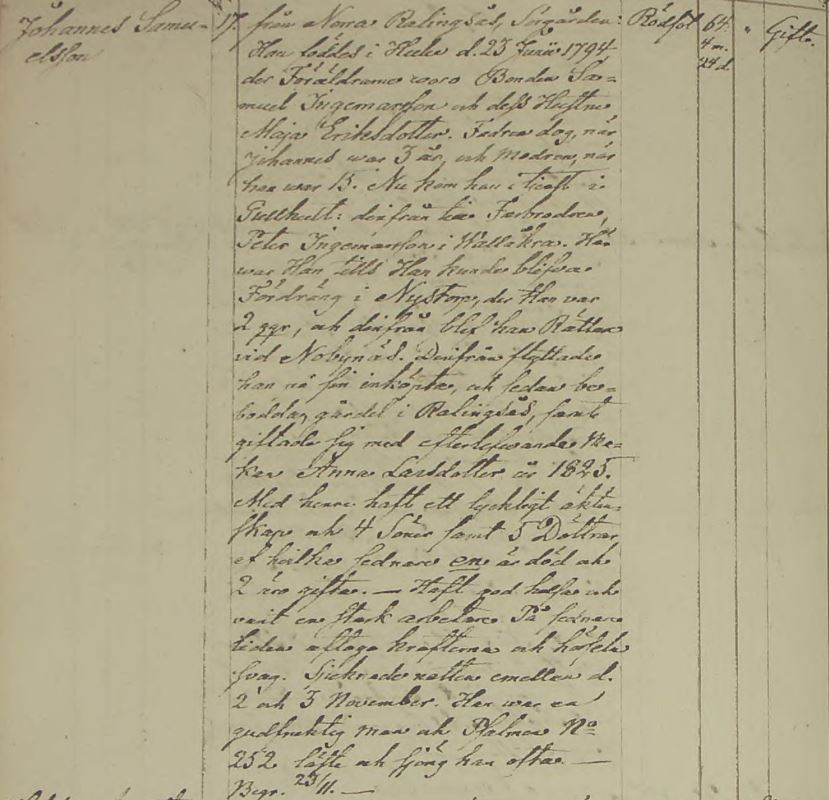 Johannes Samu- 17. från Norra Ralingsås, Sörgården: Rödsot 64 " Gift.
elsson Han föddes i Hulu d. 23 Junii 1794 4 m.
der Föräldrarne woro Bonden Sa- 24 d.
muel Ingemarsson och dess Hustru
Maja Eriksdotter. Fadren dog, när
Johannes war 3 år, och Modren, när
han war 15. Nu kom han i tienst i
Gullhult: derifrån til Farbrodren,
Peter Ingemarsson i Wallåkra. Här
war Han tills Han kunde blifwa
Fördräng i Nystorp, der Han var
2 ggr, och derifrån blef han Rättare
vid Nobynäs. Derifrån flyttade
han på sin inköpta, och sedan be-
bodda, gårdel i Ralingsås, samt
giftade sig med efterlefwande Ma-
kan Anna Larsdotter år 1825.
Med henne haft ett lyckligt äkten-
skap och 4 Söner samt 5 Döttrar,
af hvilka sednare en är död och
2 äro gifta. — Haft god helsa och
varit en stark arbetare. På sednare
tiden aftogo krafterna och hörseln
svag. Sjuknade natten emellan d.
2 och 3 November. Han war en
gudfruktig man och Psalmen No
252 läste och sjöng han ofta. —
Begr. 23/11. —